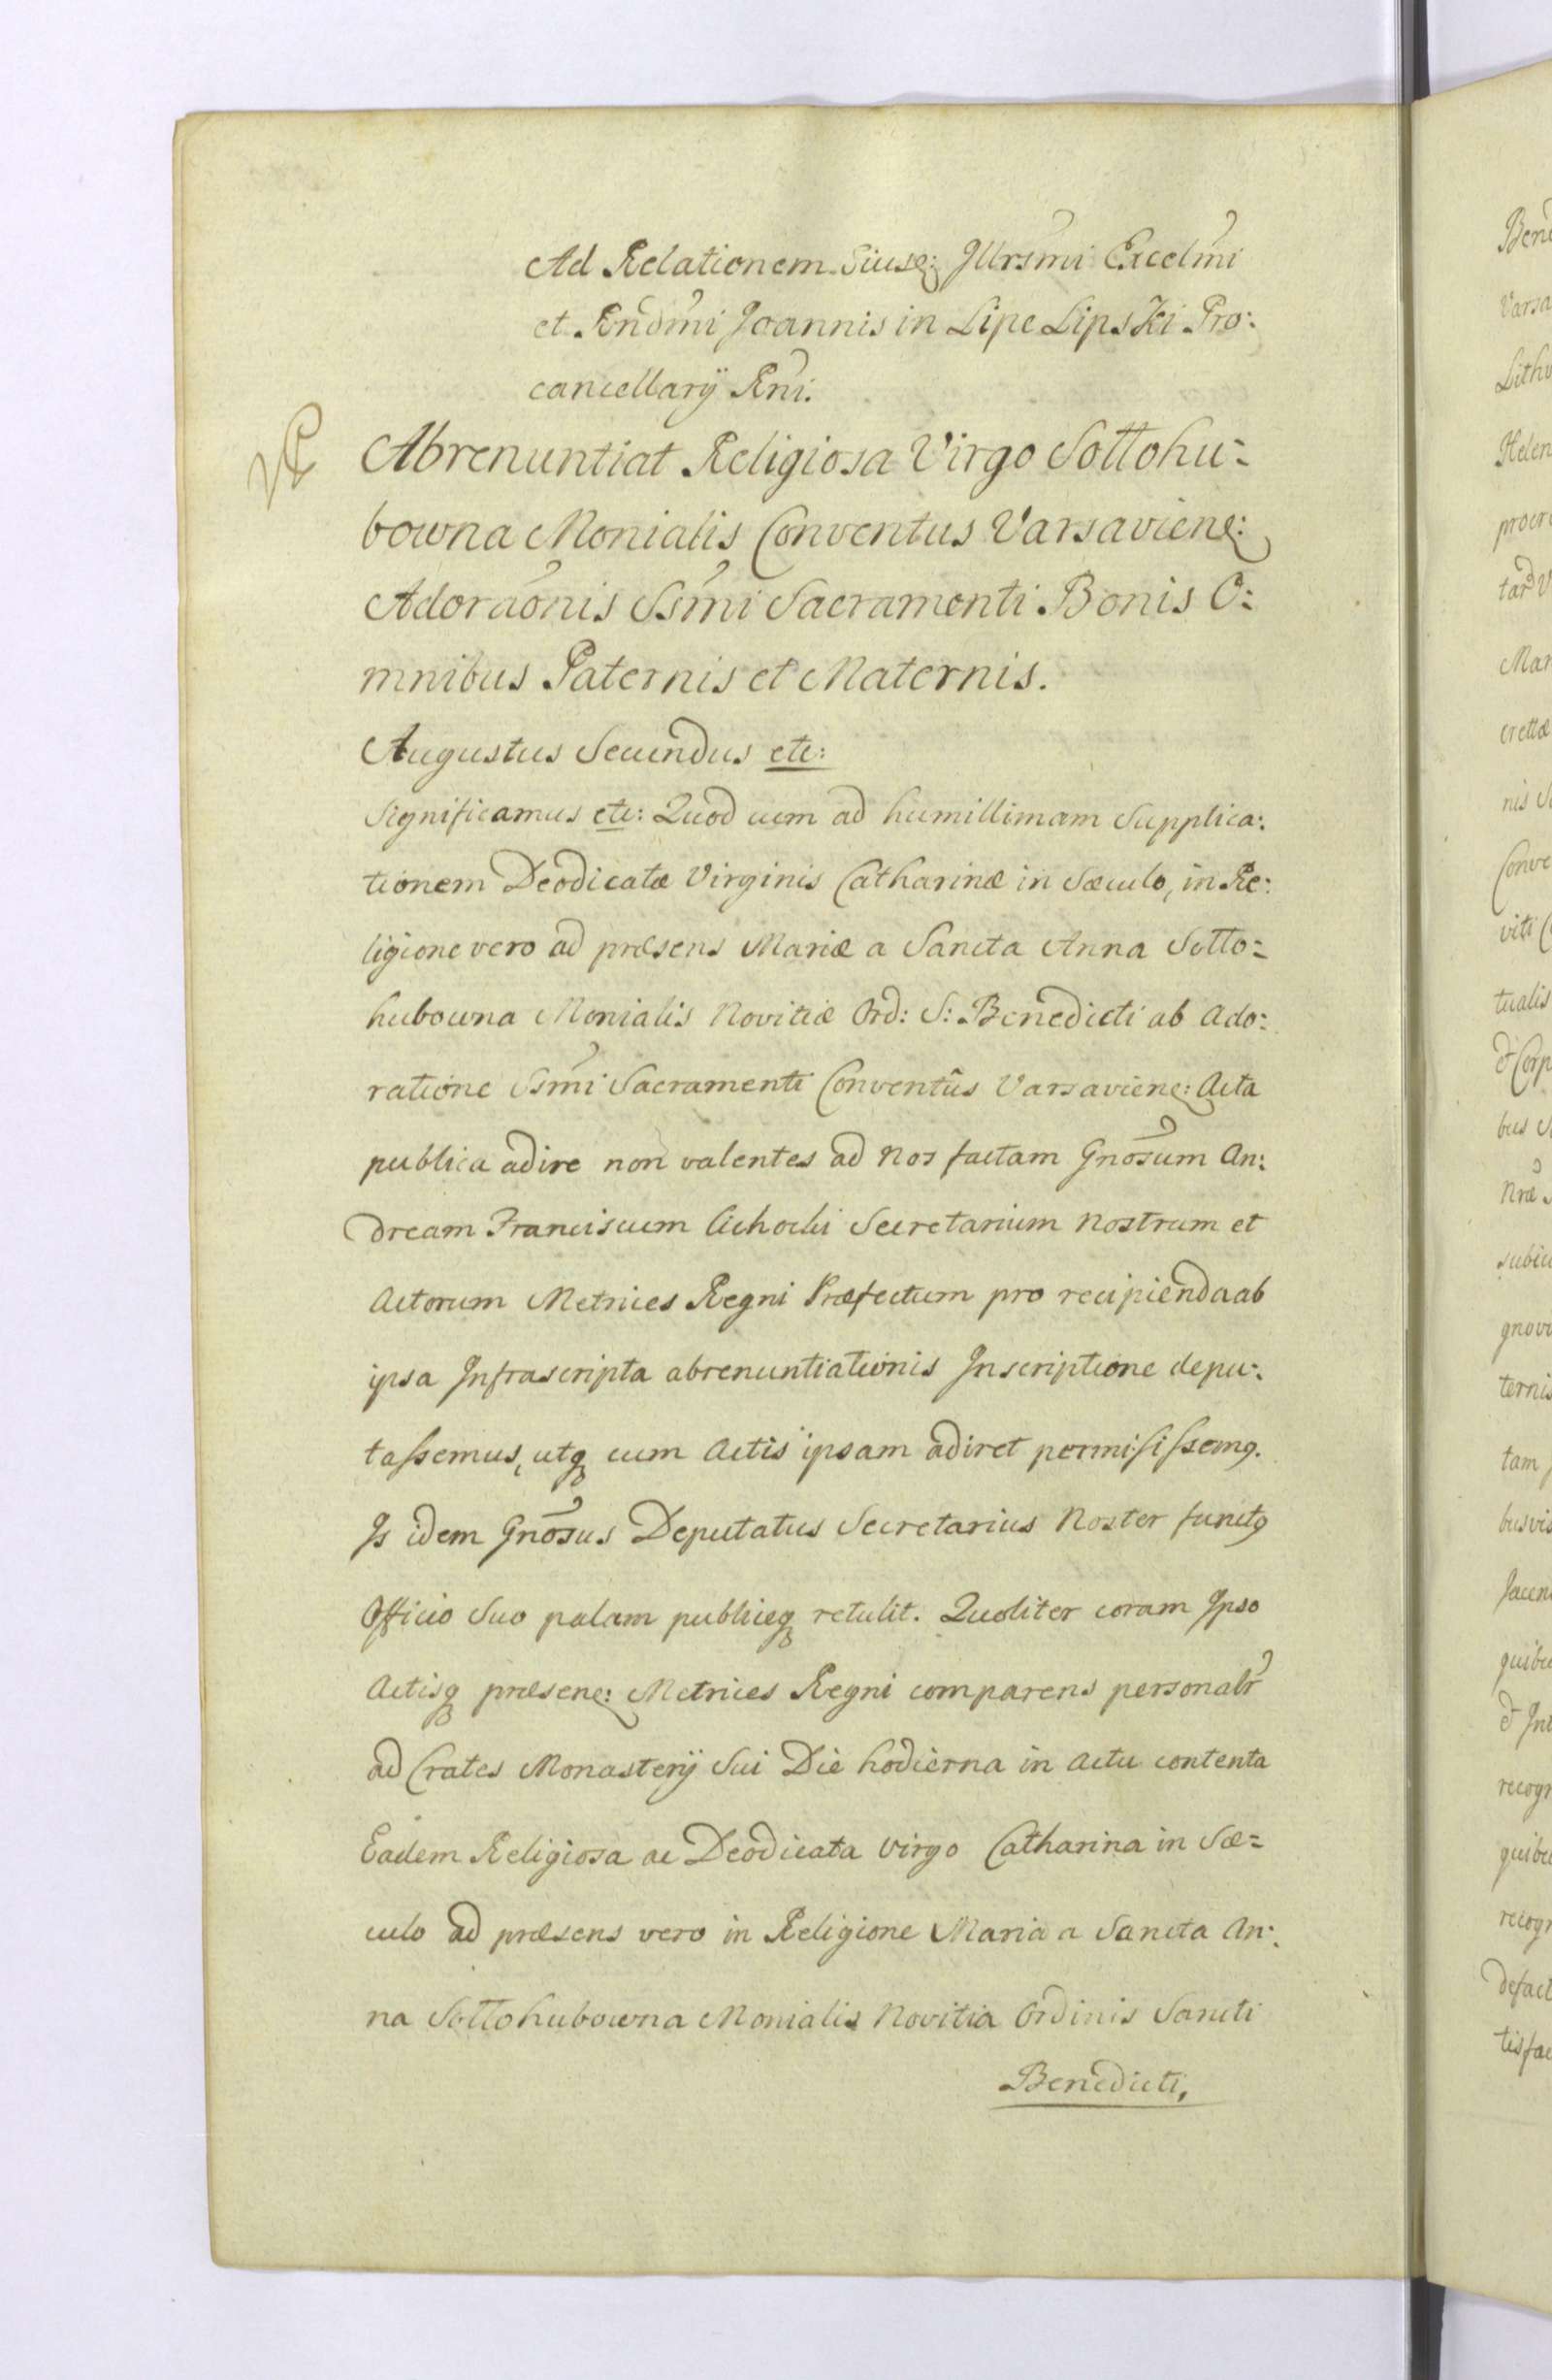 Ad Relationem Eiusq; Illrsmi Excelmi
et Rndmi Joannis in Lipe Lipski Pro:
cancellarÿ Rni.
Abrenuntiat Religiosa Virgo Sottohu=
bowna Monialis Conventus Varsavienę:
Adoraonis Ssmi Sacramenti Bonis O:
mnibus Paternis et Maternis.
Augustus Secundus etc:
Significamus etc: Quod cum ad humillimam Supplica:
tionem Deodicatæ Virginis Catharinæ in Sæculo, in Re:
ligione vero ad præsens Mariæ a Sancta Anna Sotto=
hubowna Monialis Novitiæ Ord: S: Benedicti ab Ado:
ratione Ssmi Sacramenti Conventûs Varsavienę: Acta
publica adire non valentes ad Nos factam Gnosum An:
dream Franciscum Cichocki Secretarium Nostrum et
Actorum Metrices Regni Præfectum pro recipienda ab
ipsa Infrascripta abrenuntiationis Inscriptione depu:
tassemus, utq cum Actis ipsam adiret permisissemq.
Is idem Gnosus Deputatus Secretarius Noster functq
Officio Suo palam publiceq retulit. Quoliter coram Ipso
Actisq præsenę: Metrices Regni comparens personalr
ad Crates Monasterÿ Sui Die hodierna in actu contenta
Eadem Religiosa ac Deodicata Virgo Catharina in Sæ=
culo ad præsens vero in Religione Maria a Sancta An:
na Sottohubowna Monialis Novitia Ordinis Sancti
Benedicti,